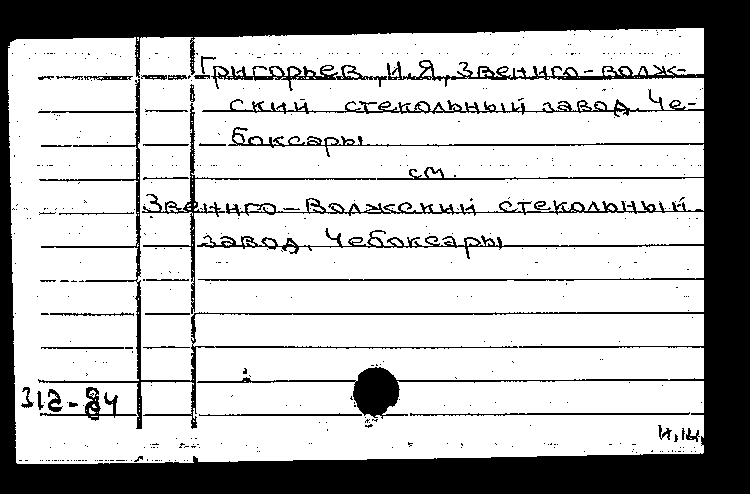 Григорьев, И.Я., Звениго-волж-
ский стекольный завод. Че-
боксары
см.
Звениго-Волжский стекольный
завод. Чебоксары
312-84